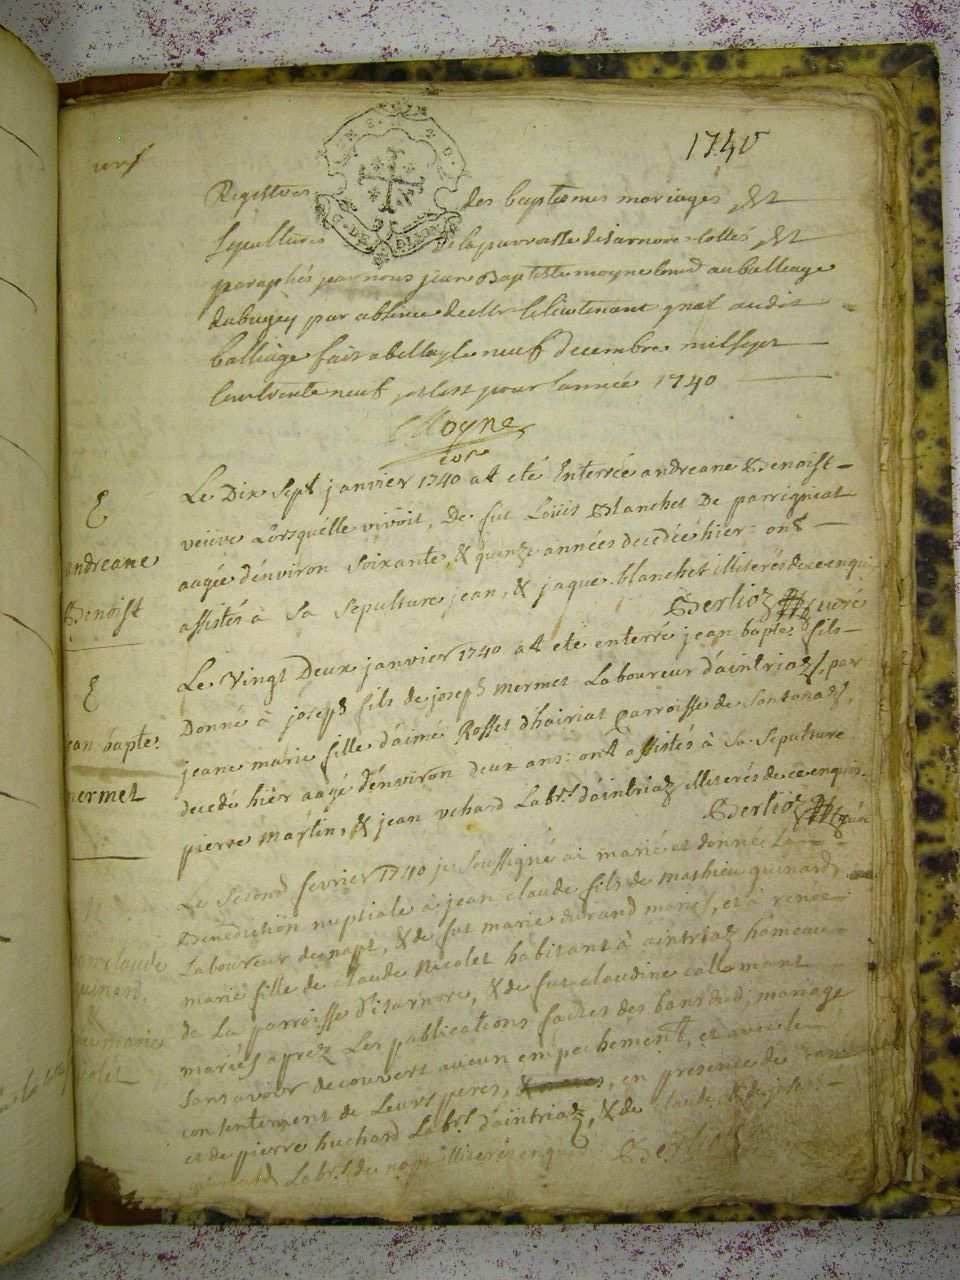 1740
Registres des baptesmes mariages &
sepultures de la parroisse disarnore cottés &
paraphés par nous jean Baptiste moyne au balliage
dubugey par absence de le lieutenant gnal audit
balliage fait a belley le neuf decembre mil sept
cent trente neuf pour l'année 1740
Moyne
E
andreane
Benoist
Le Dix Sept janvier 1740 a té été Enterrée andreane Benoist
veuve Lorsquélle vivoit, De fut Louis Blanchet De parrigneat
aagée d'énviron Soixante, & quenze années decedée hier: ont
assistés à Sa Sepulture jean, & jaque blanchet illiterés de ce enquis
Berlioz curé
E
jean bapte.
mermet
Le Vingt Deux janvier 1740 a té eté enterré jean bapte. fils
Donné à joseph fils de joseph mermet Laboureur d'aintriaz, par
jeane marie fille d'aimé Rosset d'hairiat parroisse de Sontonaz,
decedé hier aagé d'énviron deux ans: ont assistés à Sa Sepulture
pierre Martin, & jean uchard Labr. d'aintriaz illiterés de ce enquis.
Berlioz curé
jean claude
guinard,
&
renée marie
nicolet
Le Second fevrier 1740 je Soussigné ai marié et donné La
Benediction nuptiale à jean claude fils de mathieu guinard,
Laboureur de napt, & de fut marie durand mariés, et à renée
marie fille de claude Nicolet habitant à aintriaz hameau
de La parroisse d'isarnore, & de fut claudine callamant
mariés aprez Les publications faites des bans dud. mariage
Sans avoir decouvert aucun empechement, et avec le
contentement de Leurs peres, en presence de
et de pierre huchard Labr. d'aintriaz, & de claude
Labr. de napt illiterés enquis Berlioz